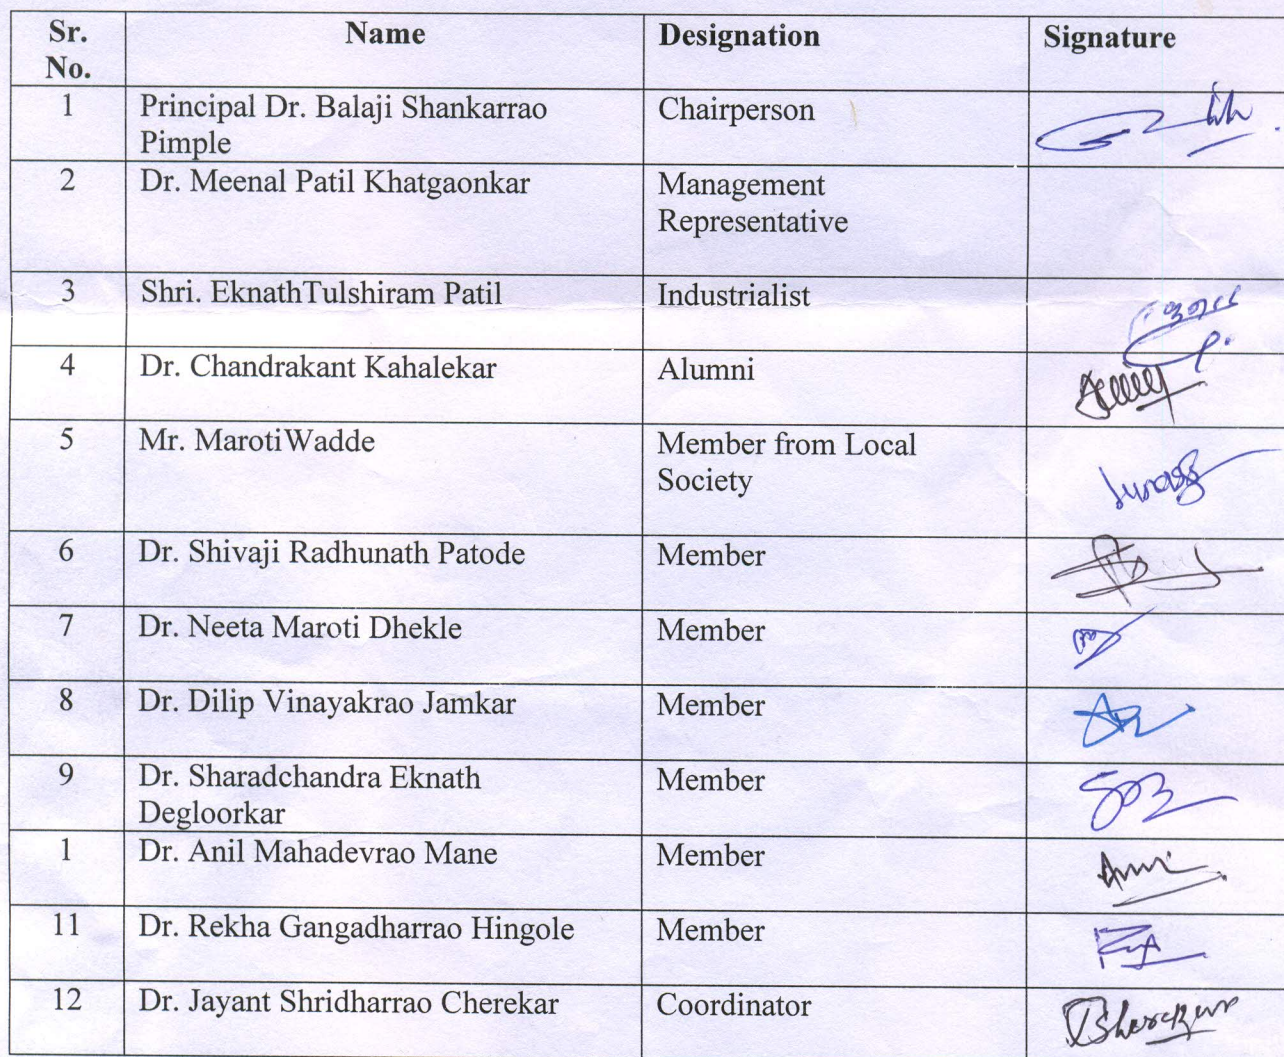 Sr. No. Name Designation Signature
1 Principal Dr. Balaji Shankarrao Pimple Chairperson
2 Dr. Meenal Patil Khatgaonkar Management Representative
3 Shri. EknathTulshiram Patil Industrialist
4 Dr. Chandrakant Kahalekar Alumni
5 Mr. MarotiWadde Member from Local Society
6 Dr. Shivaji Radhunath Patode Member
7 Dr. Neeta Maroti Dhekle Member
8 Dr. Dilip Vinayakrao Jamkar Member
9 Dr. Sharadchandra Eknath Degloorkar Member
1 Dr. Anil Mahadevrao Mane Member
11 Dr. Rekha Gangadharrao Hingole Member
12 Dr. Jayant Shridharrao Cherekar Coordinator